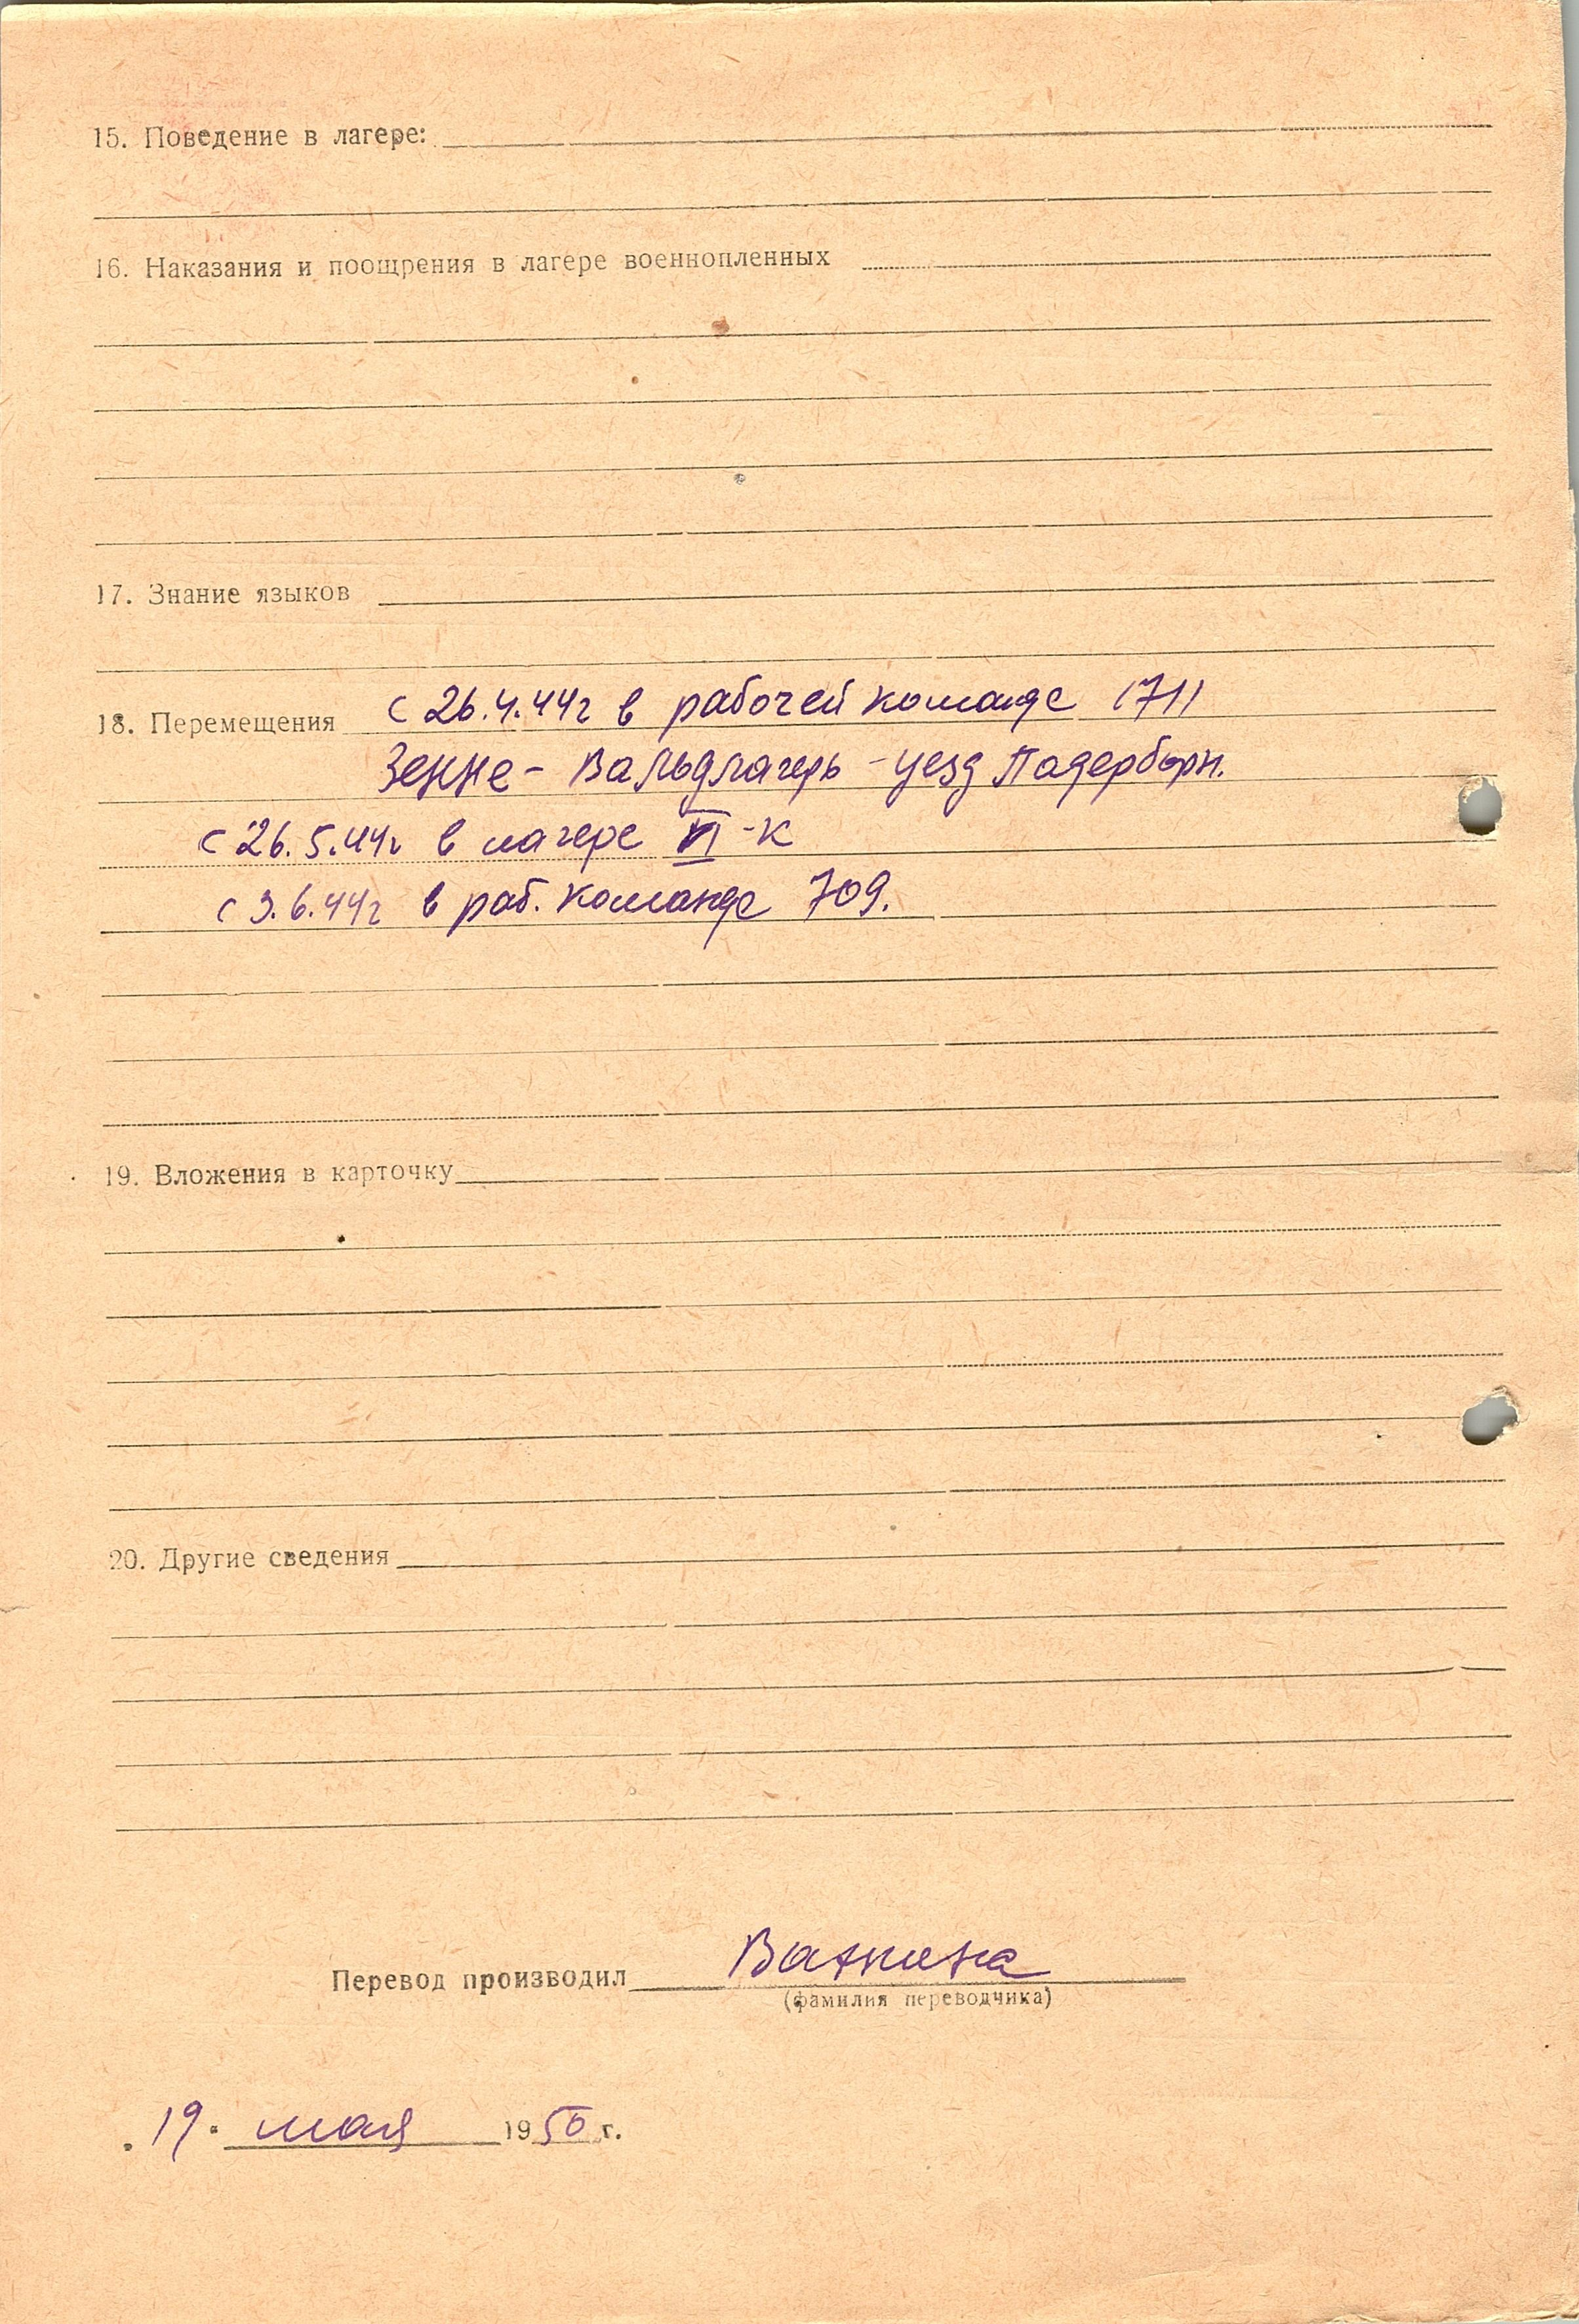 15. Поведение в лагере:
16. Наказания и поощрения в лагере военнопленных
17. Знание языков
18. Перемещения с 26.4.44г в рабочей команде 1711
Зенне - Вальдлагерь - уезд Падерборн.
с 26.5.44г в лагере VI-К
с 3.6.44г в раб. команде 709.
19. Вложения в карточку
20. Другие сведения
Перевод производил
(фамилия переводчика)
19. мая 1950 г.